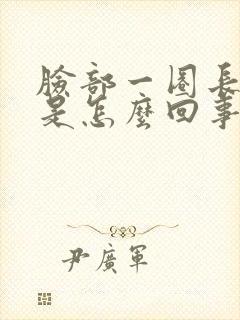 臉部一圈長
是怎麼回事
尹廣軍